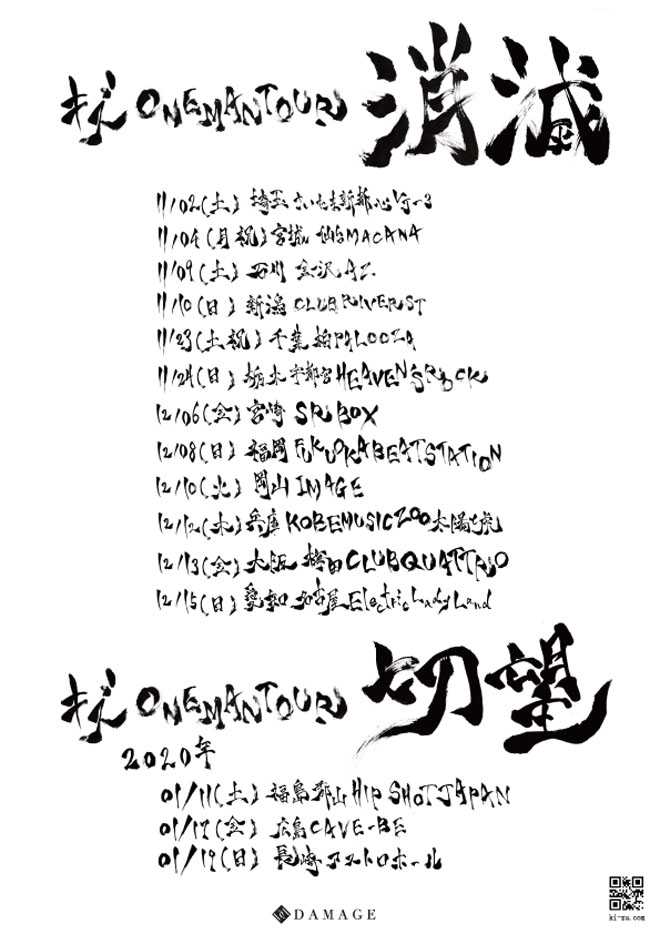 キズ ONEMANTOUR 消滅
11/02(土) 埼玉 さいたま新都心VJ-3
11/04(月祝) 宮城 仙台MACANA
11/09(土) 石川 金沢AZ
11/10(日) 新潟 CLUB RIVERST
11/23(土祝) 千葉 柏PALOOZA
11/24(日) 栃木 宇都宮HEAVEN'S ROCK
12/06(金) 宮崎 SR BOX
12/08(日) 福岡 FUKUOKABEATSTATION
12/10(火) 岡山 IMAGE
12/12(木) 兵庫 KOBEMUSICZOO太陽と虎
12/13(金) 大阪 梅田CLUBQUATTRO
12/15(日) 愛知 名古屋ElectricLadyLand
キズ ONEMANTOUR 切望
2020年
01/11(土) 福島 郡山 HIP SHOT JAPAN
01/17(金) 広島 CAVE-BE
01/19(日) 長崎 アストロホール
DAMAGE
ki-zu.com